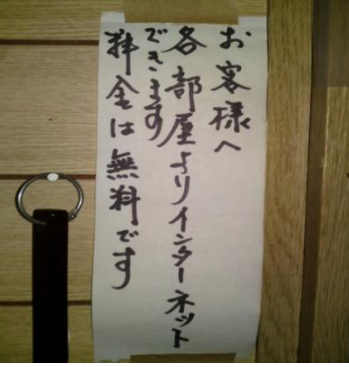 お客様へ
各部屋よりインターネット
できます
料金は無料です